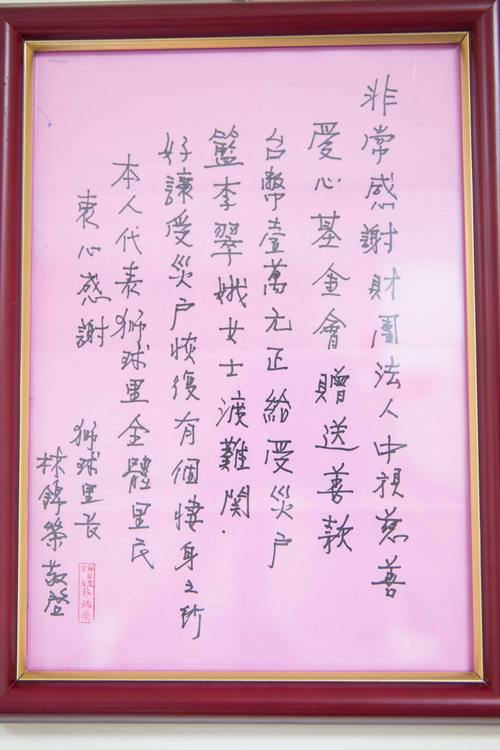 非常感謝財團法人中視慈善
愛心基金會贈送善款
台幣壹萬元正給受災戶
籃李翠娥女士渡難関.
好讓受災戶恢復有個悽身之所
本人代表獅球里全體里民
衷心感謝
獅球里長
林錦榮敬啓